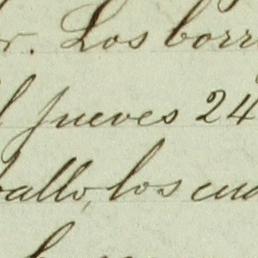 r. Los borr
l jueves 24
ballo, los cua